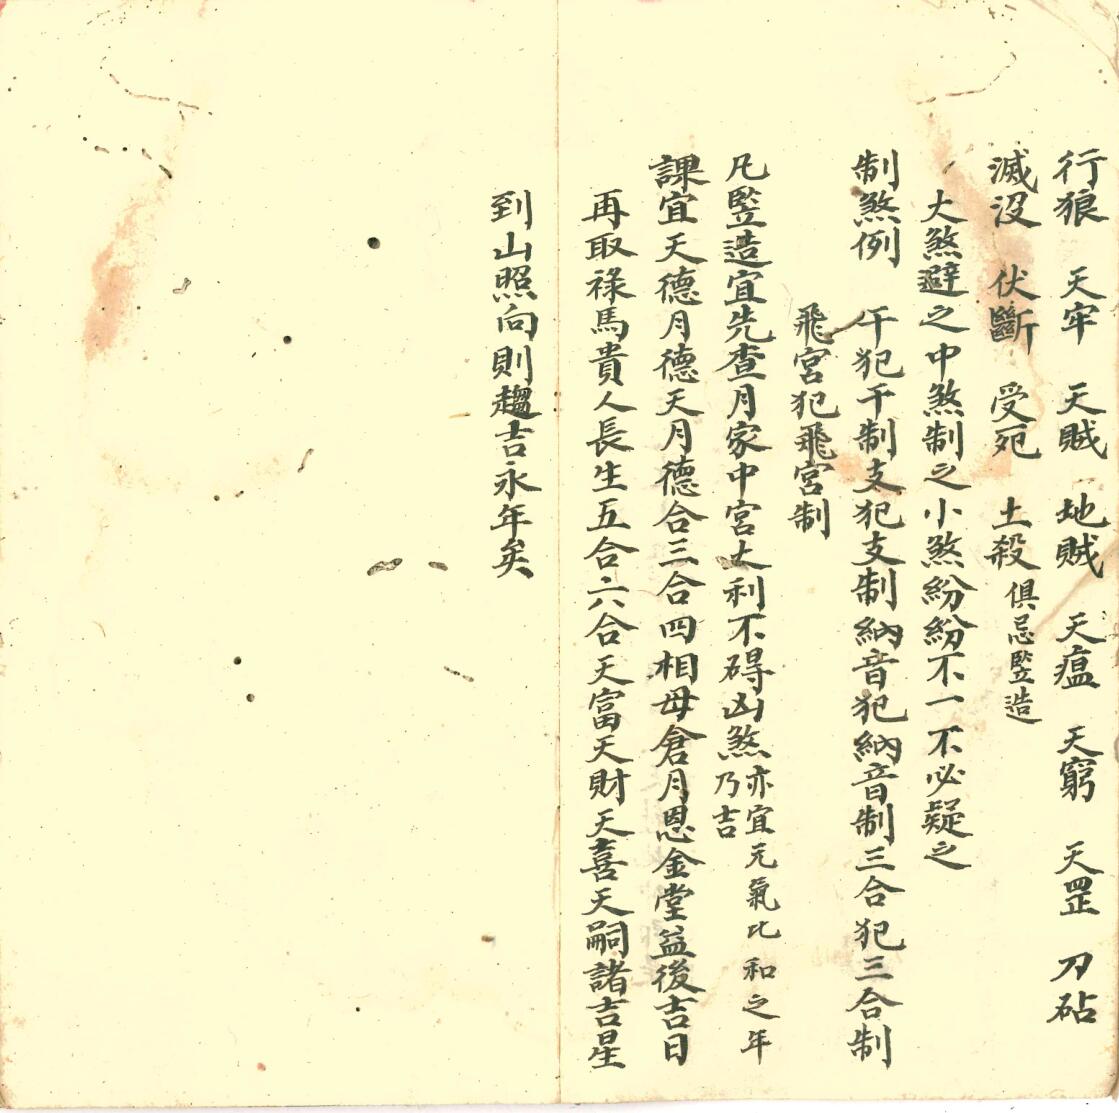 行狼　天牢　天賊　地賊　天瘟　天窮　天罡　刀砧
滅没　伏斷　受死　土殺　俱忌竪造
大煞避之中煞制之小煞紛紛不一不必疑之
制煞例　干犯干制支犯支制納音犯納音制三合犯三合制
飛宮犯飛宮制
凡竪造宜先查月家中宮大利不碍凶煞亦宜元氣比和之年
乃吉
課宜天德月德天月德合三合四相母倉月恩金堂益後吉日
再取祿馬貴人長生五合六合天富天財天喜天嗣諸吉星
到山照向則趨吉永年矣